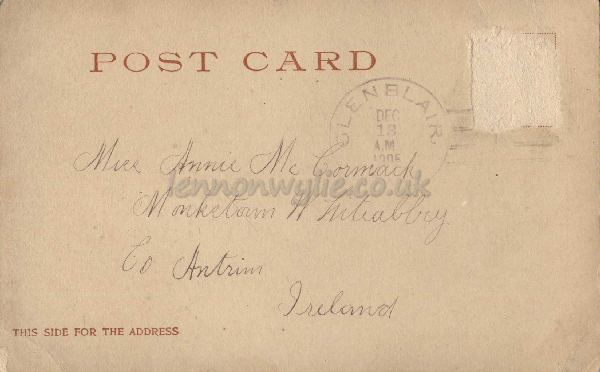 POST CARD
GLENBLAIR
DEC
13
A.M
1905
Miss Annie Mc Cormack
lennonwylie.co.uk
Monkstown Whiteabbey
Co Antrim
Ireland
THIS SIDE FOR THE ADDRESS